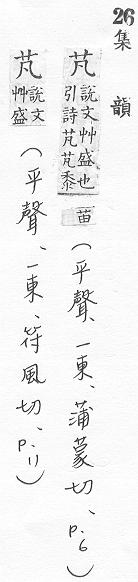 26 集韻
芃說文艸盛也引詩芃芃黍苗(平聲、一東、蒲蒙切、p.6)
芃說文艸盛(平聲、一東、符風切、p.11)